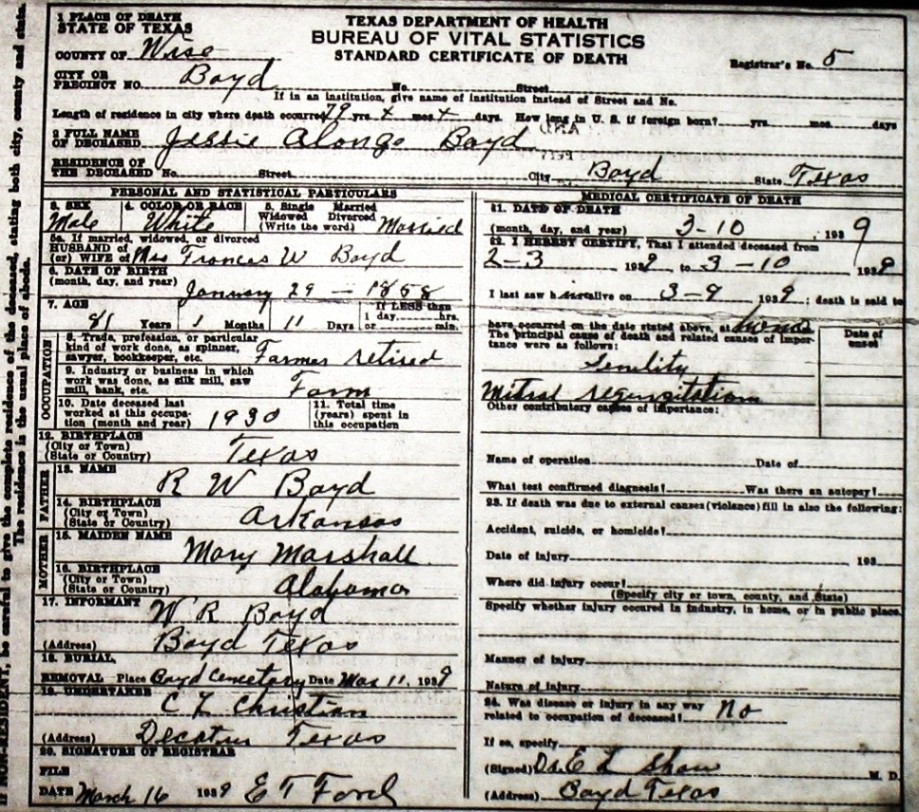 TEXAS DEPARTMENT OF HEALTH
BUREAU OF VITAL STATISTICS
STANDARD CERTIFICATE OF DEATH
Registrar's No. 5
1 PLACE OF DEATH
STATE OF TEXAS
COUNTY OF Wise
CITY OR
PRECINCT NO. Boyd No. Street
If in an institution, give name of institution instead of Street and No.
Length of residence in city where death occurred 79 yrs x mos x days. How long in U. S. if foreign born? yrs. mos. days
2 FULL NAME
OF DECEASED Jessie Alonzo Boyd
RESIDENCE OF
THE DECEASED No. Street City Boyd State Texas
PERSONAL AND STATISTICAL PARTICULARS
3. SEX 4. COLOR OR RACE 5. Single Married
Widowed Divorced
(Write the word)
Male White Married
5a. If married, widowed, or divorced
HUSBAND of
(or) WIFE of Mrs Frances W Boyd
6. DATE OF BIRTH
(month, day, and year) January 29 - 1858
7. AGE If LESS than
1 day, hrs.
or min.
81 Years 1 Months 11 Days
OCCUPATION
8. Trade, profession, or particular
kind of work done, as spinner,
sawyer, bookkeeper, etc. Farmer retired
9. Industry or business in which
work was done, as silk mill, saw
mill, bank, etc. Farm
10. Date deceased last
worked at this occupa-
tion (month and year) 1930
11. Total time
(years) spent in
this occupation
12. BIRTHPLACE
(City or Town)
(State or Country) Texas
FATHER
13. NAME R W Boyd
14. BIRTHPLACE
(City or Town)
(State or Country) Arkansas
MOTHER
15. MAIDEN NAME Mary Marshall
16. BIRTHPLACE
(City or Town)
(State or Country) Alabama
17. INFORMANT W R Boyd
(Address) Boyd Texas
18. BURIAL,
REMOVAL Place Boyd Cemetary Date Mar 11, 1939
19. UNDERTAKER C L Christian
(Address) Decatur Texas
20. SIGNATURE OF REGISTRAR
FILE
DATE March 16 1939 E T Ford
MEDICAL CERTIFICATE OF DEATH
21. DATE OF DEATH
(month, day, and year) 3-10 1939
22. I HEREBY CERTIFY, That I attended deceased from
2-3 1939, to 3-10 1939
I last saw him alive on 3-9 1939; death is said to
have occurred on the date stated above, at
The principal cause of death and related causes of impor-
tance were as follows:
Date of
onset
Senility
Mitral regurgitation
Other contributory causes of importance:
Name of operation Date of
What test confirmed diagnosis? Was there an autopsy?
23. If death was due to external causes (violence) fill in also the following:
Accident, suicide, or homicide?
Date of injury 193
Where did injury occur?
(Specify city or town, county, and State)
Specify whether injury occured in industry, in home, or in public place.
Manner of injury
Nature of injury
24. Was disease or injury in any way
related to occupation of deceased? no
If so, specify
(Signed) Dr. E L Shaw M. D.
(Address) Boyd Texas
If NON-RESIDENT, be careful to give the complete residence of the deceased, stating both city, county and state.
The residence is the usual place of abode.